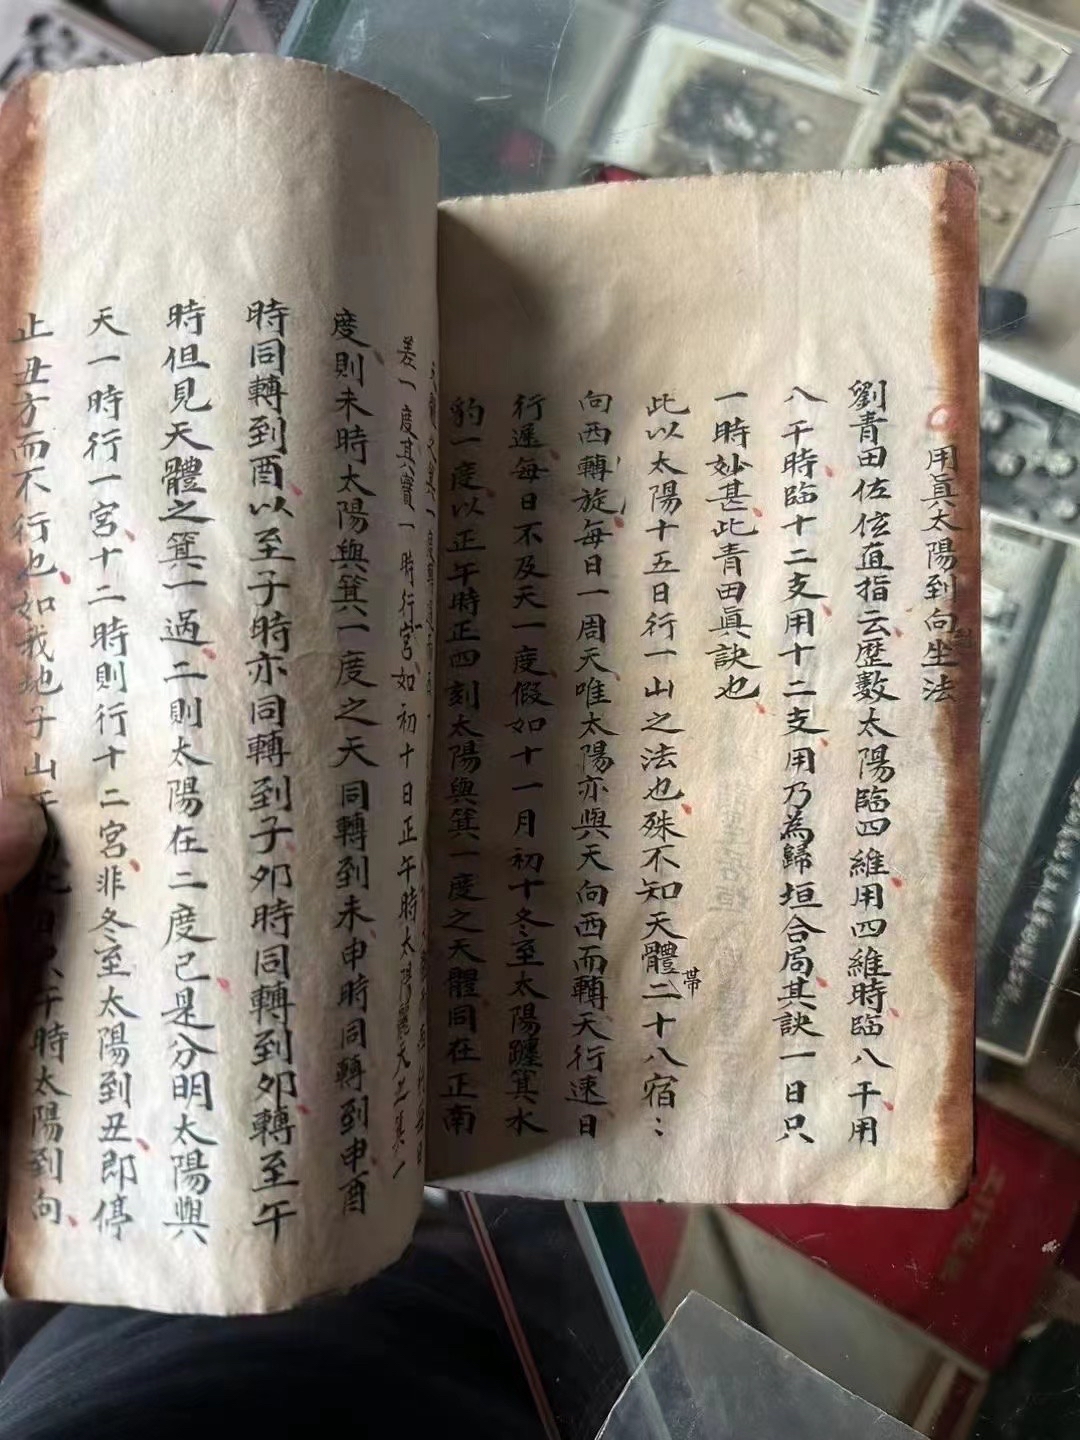 用眞太陽到向坐法
劉青田佐佐直指云歷數太陽臨四維用四維時臨八干用
八干時臨十二支用十二支用乃為歸垣合局其訣一日只
一時妙甚此青田眞訣也
此以太陽十五日行一山之法也殊不知天體帯二十八宿：
向西轉旋每日一周天唯太陽亦與天向西而轉天行速日
行遲每日不及天一度假如十一月初十冬至太陽躔箕水
豹一度以正午時正四刻太陽與箕一度之天體同在正南
差一度其實一時行一宮如初十日正午時太陽
度則未時太陽與箕一度之天同轉到未申時同轉到申酉
時同轉到酉以至子時亦同轉到子夘時同轉到夘轉至午
時但見天體之箕一過二則太陽在二度已是分明太陽與
天一時行一宮十二時則行十二宮非冬至太陽到丑即停
止丑方而不行也如我地子山午時太陽到向